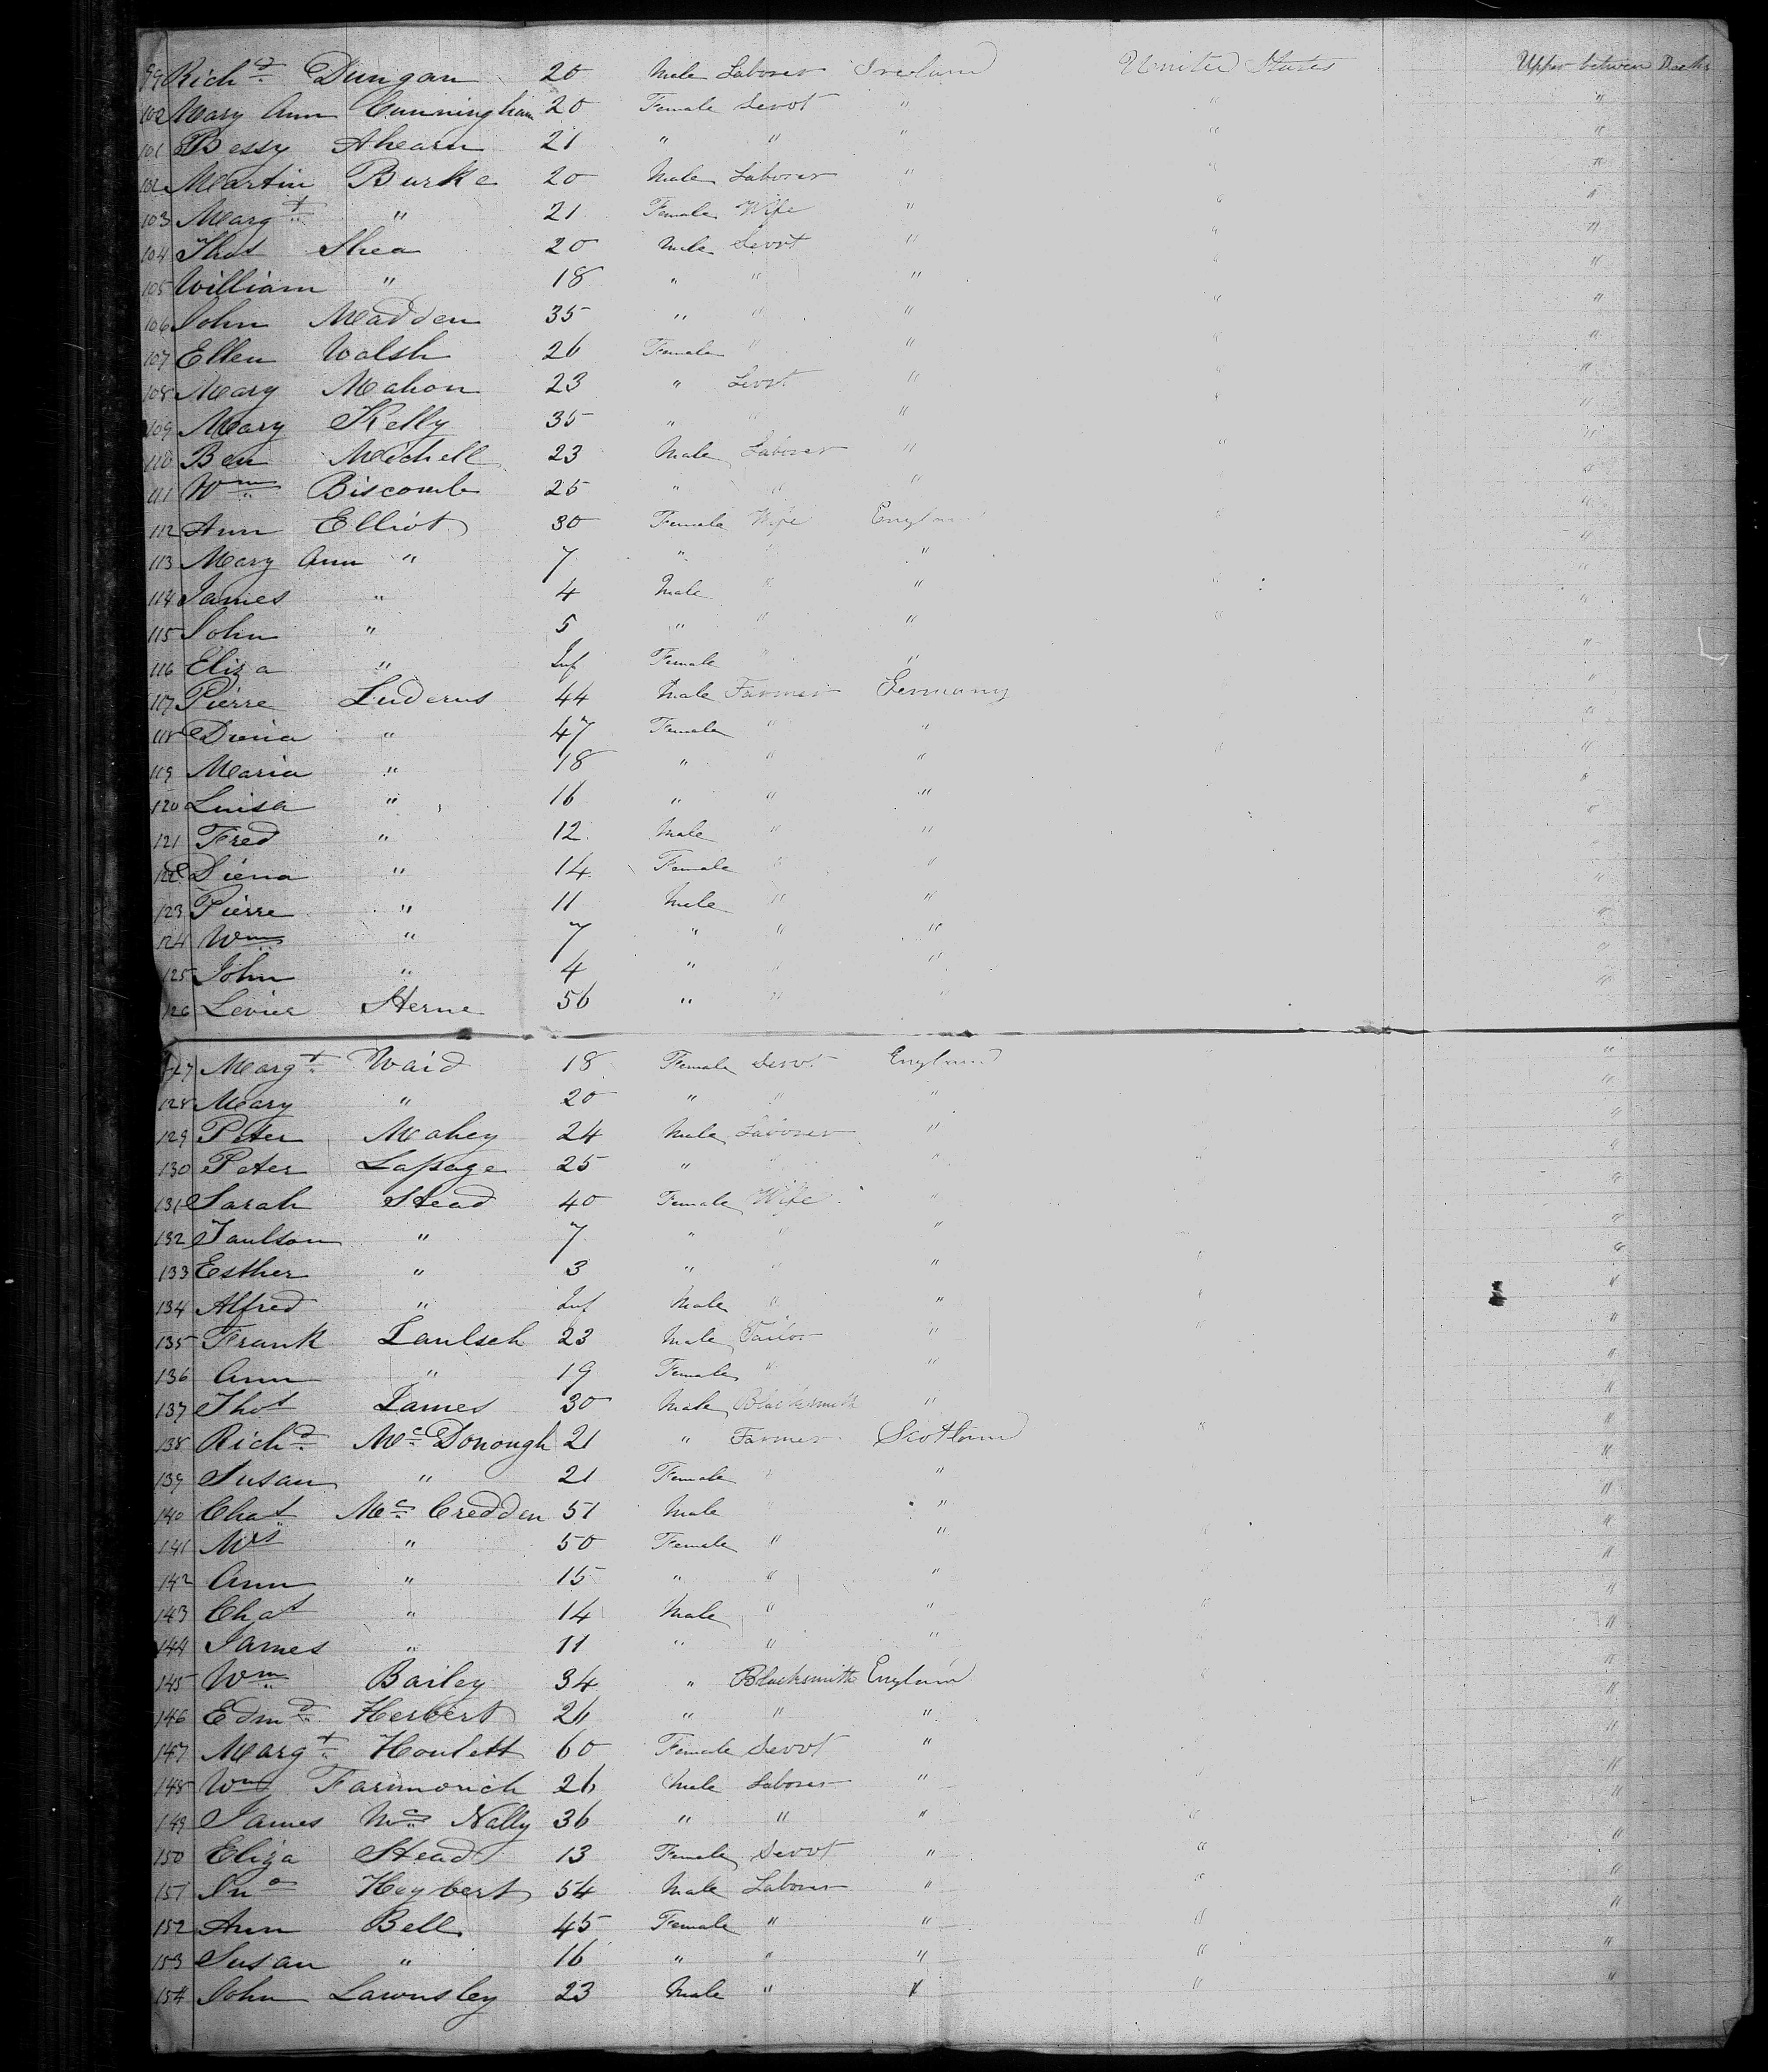 99 Richd Dungan 20 Male Laborer Ireland United States Upper between Decks
102 Mary Ann Cunningham 20 Female Servt " " "
101 Bessy Ahearn 21 " " " " "
102 Martin Burke 20 Male Laborer " " "
103 Margt " 21 Female Wife " " "
104 Thos Shea 20 Male Servt " " "
105 William " 18 " " " " "
106 John Madden 35 " " " " "
107 Ellen Walsh 26 Female " " " "
108 Mary Mahon 23 " Servt " " "
109 Mary Kelly 35 " " " "
110 Ben Mitchell 23 Male Laborer " " "
111 Wm Biscomb 25 " " " "
112 Ann Elliot 30 Female Wife England " "
113 Mary Ann " 7 " " " "
114 James " 4 Male " " " "
115 John " 5 " " " "
116 Eliza " Inf Female " " "
117 Pierre Luderus 44 Male Farmer Germany "
118 Diena " 47 Female " " "
119 Maria " 18 " " " " "
120 Luisa " 16 " " " "
121 Fred " 12 Male " " "
122 Diena " 14 Female " " "
123 Pierre " 11 Male " " "
124 Wm " 7 " " " "
125 John " 4 " " " "
126 Sterne 56 " " " "
127 Margt Waid 18 Female Servt England "
128 Mary " 20 " " " "
129 Peter Mahey 24 Male Laborer " "
130 Peter Lapage 25 " " "
131 Sarah Stead 40 Female Wife " "
132 " 7 " " " "
133 Esther " 3 " " " "
134 Alfred " Inf Male " " " "
135 Frank 23 Male Tailor " " "
136 Ann " 19 Female " " "
137 Thos James 30 Male Blacksmith " "
138 Richd McDonough 21 " Farmer Scotland " "
139 Susan " 21 Female " " "
140 Chas McCredden 51 Male " " "
141 Mrs " 50 Female " " "
142 Ann " 15 " " " "
143 Chas " 14 Male " " " "
144 James " 11 " " " "
145 Wm Bailey 34 " Blacksmith England " "
146 Edmd Herbert 26 " " " "
147 Margt Houlett 60 Female Servt " "
148 Wm 26 Male Laborer " " "
149 James McNally 36 " " " " "
150 Eliza Stead 13 Female Servt " " "
151 Jno Heybert 54 Male Laborer " " "
152 Ann Bell 45 Female " " " "
153 Susan " 16 " " " " "
154 John Lawnsley 23 Male " " " "